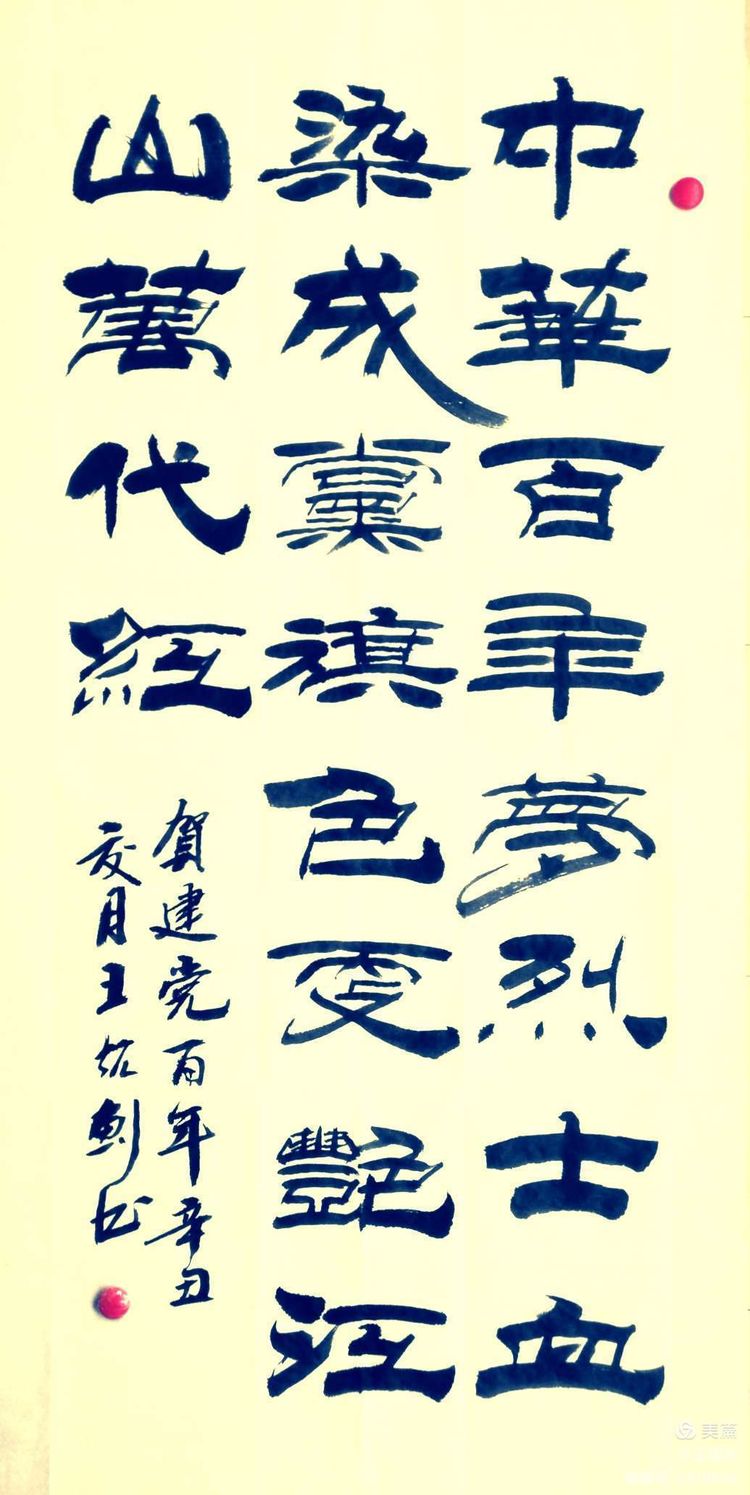 中華百年夢烈士血
染成黨旗色更艷江
山萬代紅
賀建党百年辛丑
友月王佑劍书
美篇